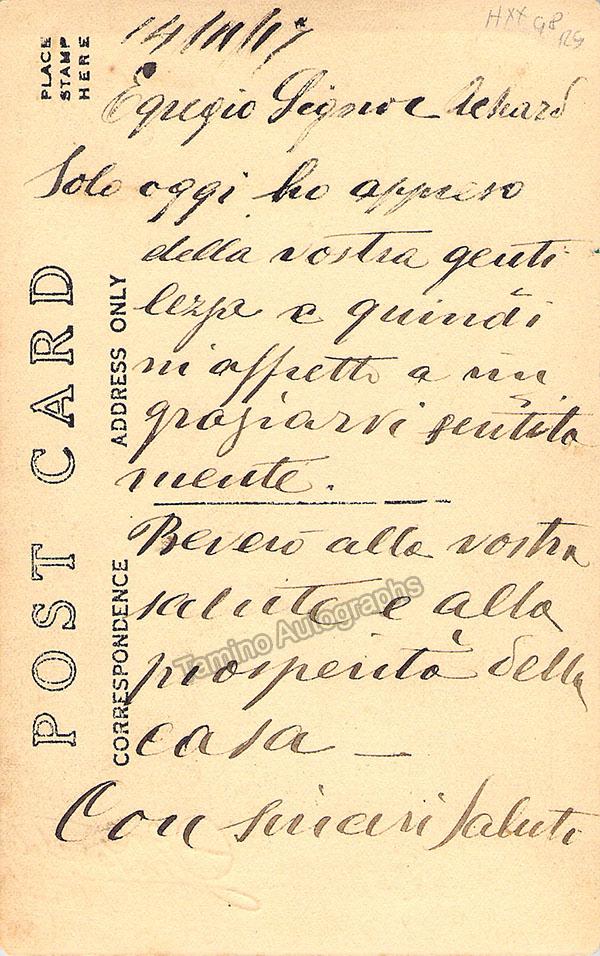 14/11/17
Egregio Signor
Solo oggi ho appreso
della vostra genti
lezza e quindi
m'affretto a rin
graziarvi sentita
mente.
Beverò alla vostra
salute e alla
prosperità della
casa —
Con sinceri saluti
PLACE
STAMP
HERE
POST CARD
CORRESPONDENCE
ADDRESS ONLY
Tamino Autographs